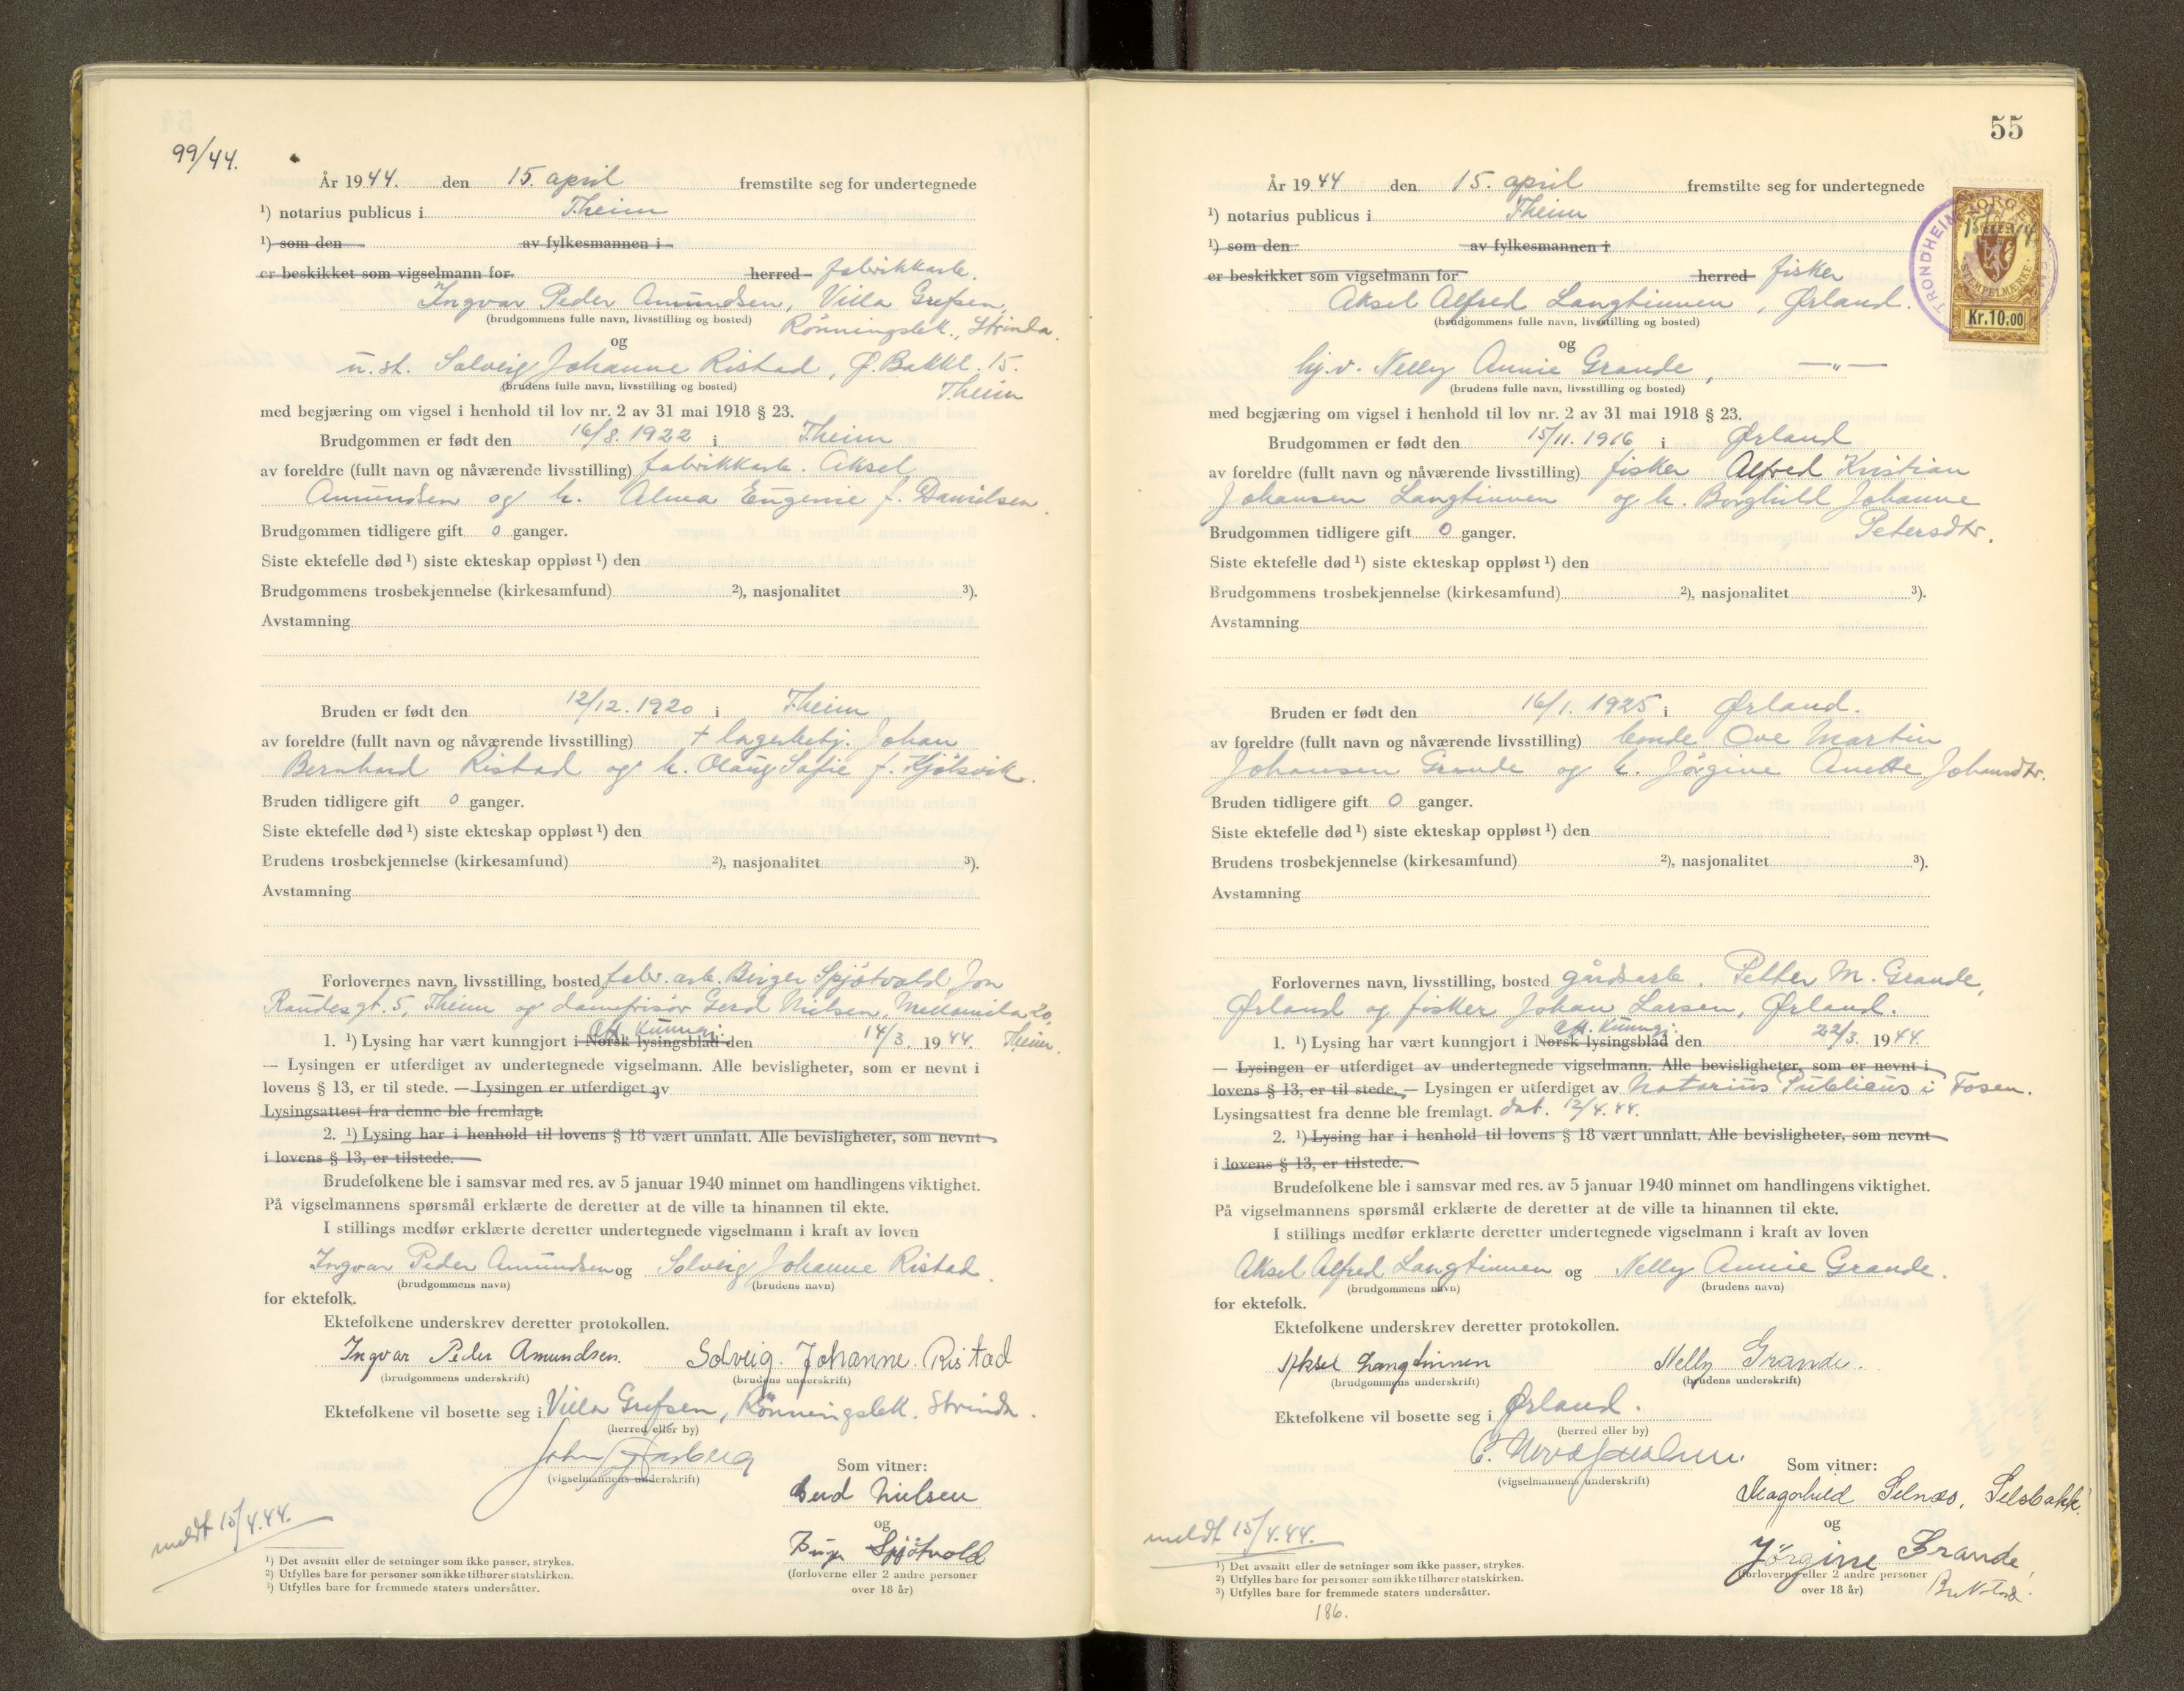 99/44.
År 1944. den 15. april fremstilte seg for undertegnede
¹) notarius publicus i T.heim
¹) som den av fylkesmannen i
er beskikket som vigselmann for herred fabrikkarb.
Ingvar Peder Amundsen, Villa Grefsen,
(brudgommens fulle navn, livsstilling og bosted) Rönningsbk., Strinda.
og
u. st. Solveig Johanne Ristad, Ø. Bakkl. 15.
(brudens fulle navn, livsstilling og bosted) T.heim
med begjæring om vigsel i henhold til lov nr. 2 av 31 mai 1918 § 23.
Brudgommen er født den 16/8. 1922 i T.heim
av foreldre (fullt navn og nåværende livsstilling) fabrikkarb. Aksel
Amundsen og h. Alma Eugenie f. Danielsen.
Brudgommen tidligere gift 0 ganger.
Siste ektefelle død ¹) siste ekteskap oppløst ¹) den
Brudgommens trosbekjennelse (kirkesamfund) ²), nasjonalitet ³).
Avstamning
Bruden er født den 12/12. 1920 i T.heim
av foreldre (fullt navn og nåværende livsstilling) + lagerbetj. Johan
Bernhard Ristad og h. Olaug Sofie f. Kjølsvik.
Bruden tidligere gift 0 ganger.
Siste ektefelle død ¹) siste ekteskap oppløst ¹) den
Brudens trosbekjennelse (kirkesamfund) ²), nasjonalitet ³).
Avstamning
Forlovernes navn, livsstilling, bosted fabr. arb. Birger Spjøtvold Jon
Raudes gt. 5, T.heim og damefrisør Gerd Nielsen, Mellomila 20,
Off. Kunngj.
1. ¹) Lysing har vært kunngjort i Norsk lysingsblad den 14/3. 1944. T.heim.
— Lysingen er utferdiget av undertegnede vigselmann. Alle bevisligheter, som er nevnt i
lovens § 13, er til stede. — Lysingen er utferdiget av
Lysingsattest fra denne ble fremlagt.
2. ¹) Lysing har i henhold til lovens § 18 vært unnlatt. Alle bevisligheter, som nevnt
i lovens § 13, er tilstede.
Brudefolkene ble i samsvar med res. av 5 januar 1940 minnet om handlingens viktighet.
På vigselmannens spørsmål erklærte de deretter at de ville ta hinannen til ekte.
I stillings medfør erklærte deretter undertegnede vigselmann i kraft av loven
Ingvar Peder Amundsen og Solveig Johanne Ristad.
(brudgommens navn) (brudens navn)
for ektefolk.
Ektefolkene underskrev deretter protokollen.
Ingvar Peder Amundsen. Solveig. Johanne. Ristad
(brudgommens underskrift) (brudens underskrift)
Ektefolkene vil bosette seg i Villa Grefsen, Rönningsbk. Strinda.
(herred eller by)
John Aasberg Som vitner:
(vigselmannens underskrift)
Gerd Nielsen
og
Birger Spjøtvold
(forloverne eller 2 andre personer
over 18 år)
meldt 15/4.44.
¹) Det avsnitt eller de setninger som ikke passer, strykes.
²) Utfylles bare for personer som ikke tilhører statskirken.
³) Utfylles bare for fremmede staters undersåtter.
55
År 1944 den 15. april fremstilte seg for undertegnede
¹) notarius publicus i T.heim
¹) som den av fylkesmannen i
er beskikket som vigselmann for herred fisker
Aksel Alfred Langtinnen, Ørland.
(brudgommens fulle navn, livsstilling og bosted)
og
hj.v. Nelly Annie Grande, —"—
(brudens fulle navn, livsstilling og bosted)
TRONDHEIM
NORGE
STEMPELMÆRKE
Kr.10,00
med begjæring om vigsel i henhold til lov nr. 2 av 31 mai 1918 § 23.
Brudgommen er født den 15/11. 1916 i Ørland
av foreldre (fullt navn og nåværende livsstilling) fisker Alfred Kristian
Johansen Langtinnen og h. Borghild Johanne
Brudgommen tidligere gift 0 ganger. Petersdtr.
Siste ektefelle død ¹) siste ekteskap oppløst ¹) den
Brudgommens trosbekjennelse (kirkesamfund) ²), nasjonalitet ³).
Avstamning
Bruden er født den 16/1. 1925 i Ørland.
av foreldre (fullt navn og nåværende livsstilling) bonde Ove Martin
Johansen Grande og h. Jørgine Anette Johansdtr.
Bruden tidligere gift 0 ganger.
Siste ektefelle død ¹) siste ekteskap oppløst ¹) den
Brudens trosbekjennelse (kirkesamfund) ²), nasjonalitet ³).
Avstamning
Forlovernes navn, livsstilling, bosted gårdsarb. Petter M. Grande,
Ørland og fisker Johan Larsen, Ørland.
Off. Kunngj.
1. ¹) Lysing har vært kunngjort i Norsk lysingsblad den 22/3. 1944.
— Lysingen er utferdiget av undertegnede vigselmann. Alle bevisligheter, som er nevnt i
lovens § 13, er til stede. — Lysingen er utferdiget av Notarius Publicus i Fosen.
Lysingsattest fra denne ble fremlagt. dat. 12/4.44.
2. ¹) Lysing har i henhold til lovens § 18 vært unnlatt. Alle bevisligheter, som nevnt
i lovens § 13, er tilstede.
Brudefolkene ble i samsvar med res. av 5 januar 1940 minnet om handlingens viktighet.
På vigselmannens spørsmål erklærte de deretter at de ville ta hinannen til ekte.
I stillings medfør erklærte deretter undertegnede vigselmann i kraft av loven
Aksel Alfred Langtinnen og Nelly Annie Grande.
(brudgommens navn) (brudens navn)
for ektefolk.
Ektefolkene underskrev deretter protokollen.
Aksel Langtinnen Nelly Grande.
(brudgommens underskrift) (brudens underskrift)
Ektefolkene vil bosette seg i Ørland.
(herred eller by)
Som vitner:
(vigselmannens underskrift)
Magnhild Selnæs, Selsbakk.
og
Jörgine Grande
(forloverne eller 2 andre personer
over 18 år)
meldt 15/4.44.
¹) Det avsnitt eller de setninger som ikke passer, strykes.
²) Utfylles bare for personer som ikke tilhører statskirken.
³) Utfylles bare for fremmede staters undersåtter.
186.